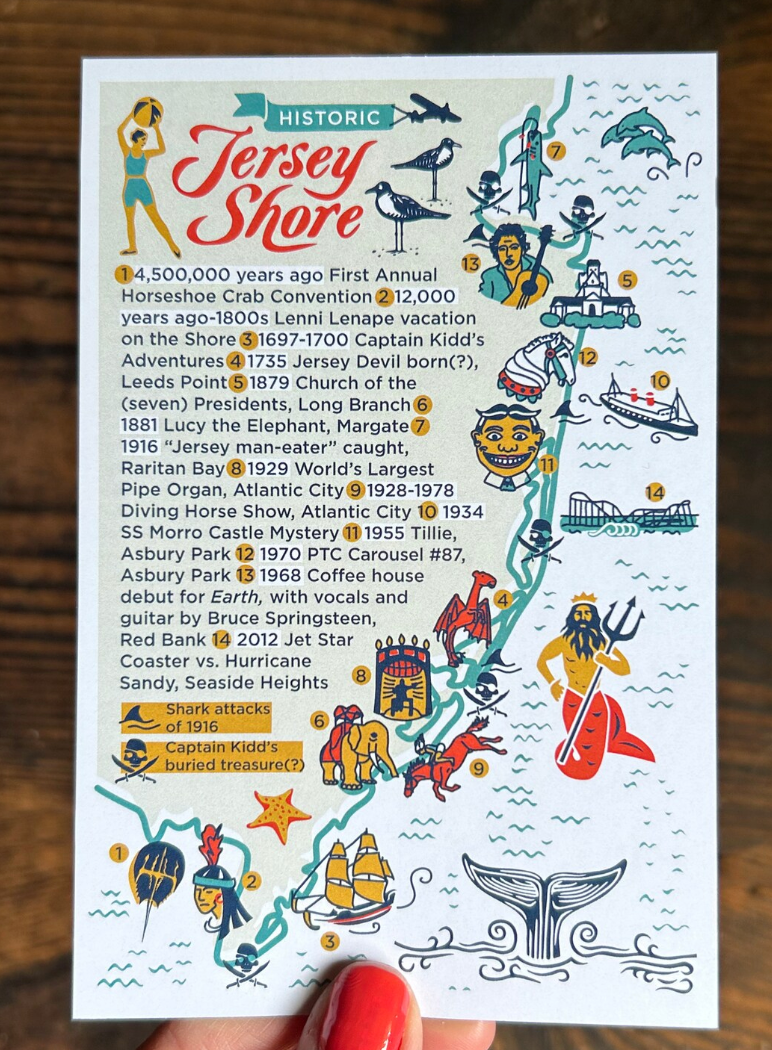 HISTORIC
Jersey
Shore
1 4,500,000 years ago First Annual
Horseshoe Crab Convention 2 12,000
years ago-1800s Lenni Lenape vacation
on the Shore 3 1697-1700 Captain Kidd's
Adventures 4 1735 Jersey Devil born(?),
Leeds Point 5 1879 Church of the
(seven) Presidents, Long Branch 6
1881 Lucy the Elephant, Margate 7
1916 “Jersey man-eater” caught,
Raritan Bay 8 1929 World's Largest
Pipe Organ, Atlantic City 9 1928-1978
Diving Horse Show, Atlantic City 10 1934
SS Morro Castle Mystery 11 1955 Tillie,
Asbury Park 12 1970 PTC Carousel #87,
Asbury Park 13 1968 Coffee house
debut for Earth, with vocals and
guitar by Bruce Springsteen,
Red Bank 14 2012 Jet Star
Coaster vs. Hurricane
Sandy, Seaside Heights
Shark attacks
of 1916
Captain Kidd's
buried treasure(?)
7
13
5
12
10
11
14
4
8
6
9
1
2
3